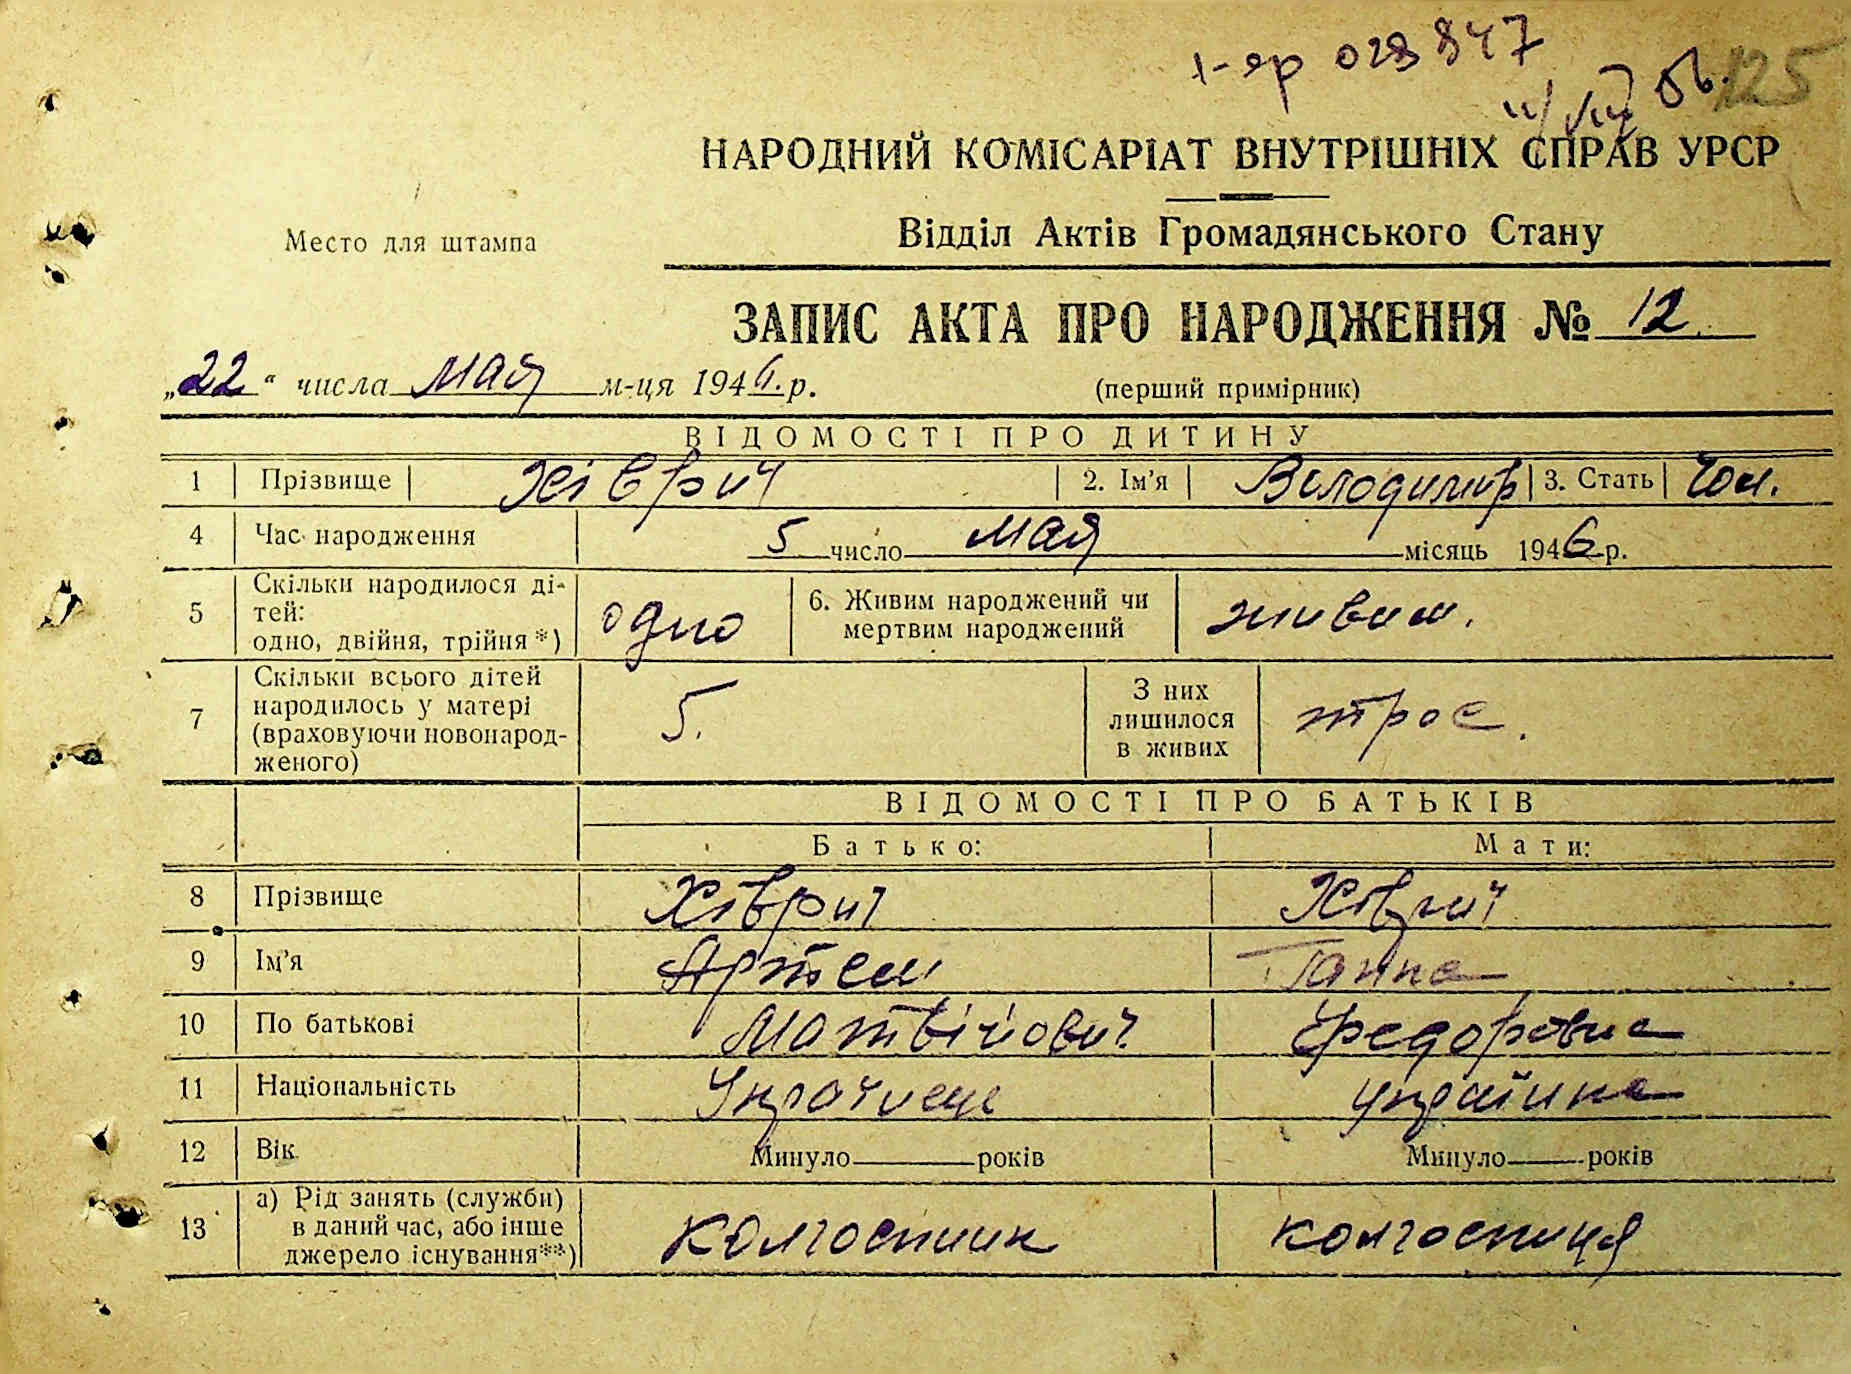 І-яр 028847
56.
125
НАРОДНИЙ КОМІСАРІАТ ВНУТРІШНІХ СПРАВ УРСР
Место для штампа
Відділ Актів Громадянського Стану
ЗАПИС АКТА ПРО НАРОДЖЕННЯ № 12
„22“ числа мая м-ця 1946.р.
(перший примірник)
ВІДОМОСТІ ПРО ДИТИНУ
1 Прізвище Хіврич 2. Ім'я Володимир 3. Стать Чол.
4 Час народження 5 число мая місяць 1946 р.
5 Скільки народилося ді-
тей:
одно, двійня, трійня*) одно 6. Живим народжений чи
мертвим народжений живим.
7 Скільки всього дітей
народилось у матері
(враховуючи новонарод-
женого) 5. З них
лишилося
в живих троє.
ВІДОМОСТІ ПРО БАТЬКІВ
Батько: Мати:
8 Прізвище Хіврич Хіврич
9 Ім'я Артем Ганна
10 По батькові Матвійович Федоровна
11 Національність Українець українка
12 Вік Минуло років Минуло років
13 а) Рід занять (служби)
в даний час, або інше
джерело існування**) колгоспник колгоспниця